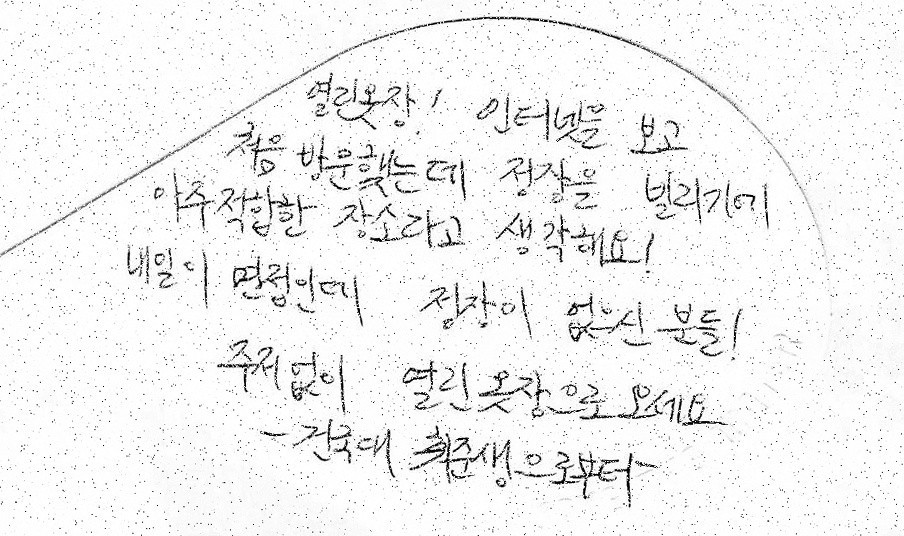 열린옷장! 인터넷을 보고
처음 방문했는데 정장을 빌리기에
아주 적합한 장소라고 생각해요!
내일이 면접인데 정장이 없으신 분들!
주저없이 열린옷장으로 오세요
-건국대 취준생으로부터-